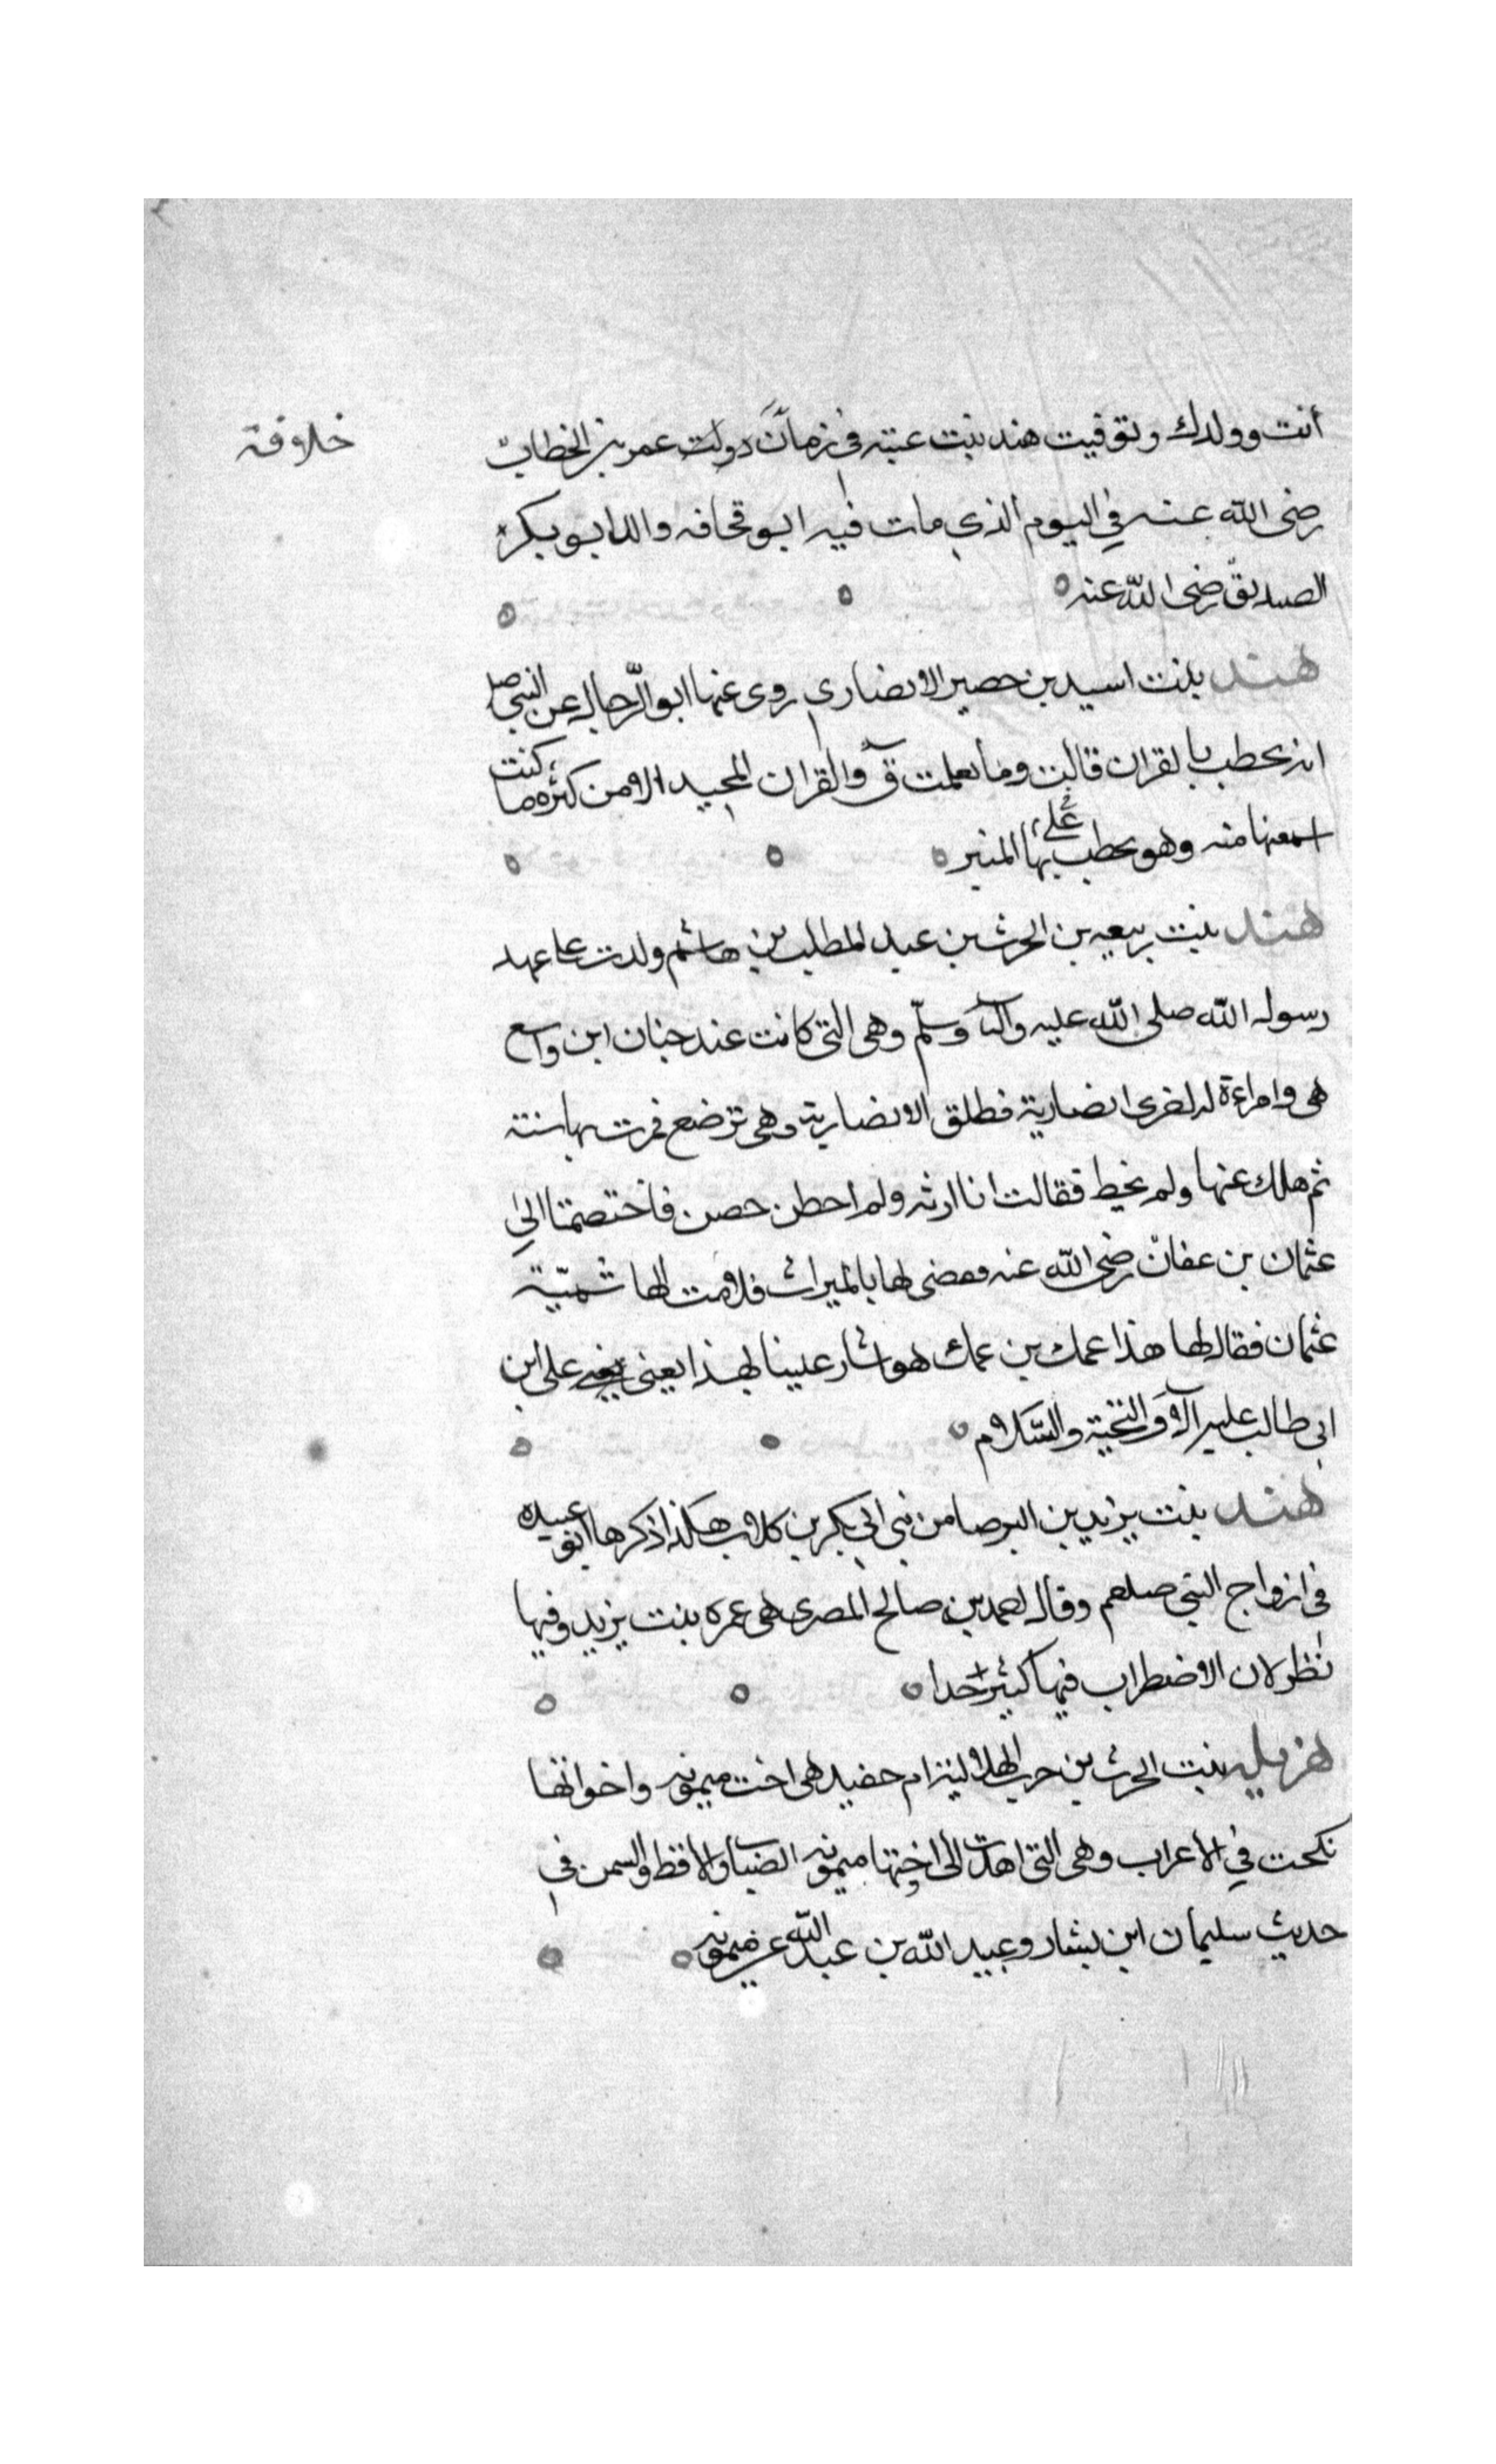 أنت وولدك وتوفيت هند بنت عتبه في زمان دولت عمر بن الخطاب
خلافة
رضى الله عنه في اليوم الذي مات فيه ابو قحافه والد ابو بكر
الصديق رضى الله عنه
هند بنت اسيد بن حصير الانصاري روى عنها ابو الرجال عن النبي صلع
انه يخطب بالقران قالت وما تعلمت ق والقران المجيد الا من كثره ما كنت
اسمعها منه وهو يخطب بها على المنبر
هند بنت ربيعه بن الحرث بن عبد المطلب بن هاشم ولدت على عهد
رسول الله صلى الله عليه وآله وسلم وهى التى كانت عند حبان ابن واسع
هى وامراءة له اخرى انصارية فطلق الانصارية وهى ترضع فمرت بها سنته
ثم هلك عنها ولم تحيط فقالت انا ارثه ولم احطن حصن فاختصمتا الى
عثمان بن عفان رضى الله عنه فقضى لها بالميراث فلامت الهاشمية
عثمان فقال لها هذا عمك بن عمك هو اشار علينا بهذا يعني على ابن
ابى طالب عليه الآف التحية والسلام
هند بنت يزيد بن البرصا من بنى ابى بكر بن كلاب هكذا ذكرها ابو عبيده
فى ازواج النبى صلعم وقال احمد بن صالح المصرى هى عمره بنت يزيد وفيها
نظر لان الاضطراب فيها كثير جدا
هزيله بنت الحرث بن حرب الهلالية ام حفيد هى اخت ميمونه واخواتها
نكحت في الاعراب وهى التى اهدت الى اختها ميمونه الضباب والاقط والسمن فى
حديث سليمان ابن بشار وعبيد الله بن عبد الله عن ميمونه